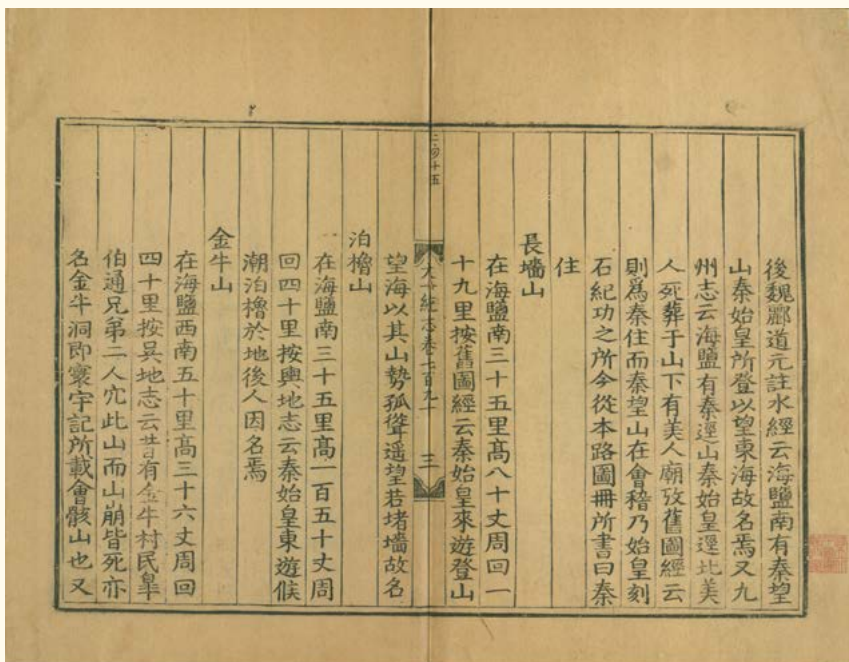 後魏酈道元註水經云海鹽南有秦望
山秦始皇所登以望東海故名焉又九
州志云海鹽有秦逕山秦始皇逕此美
人死葬于山下有美人廟攷舊圖經云
則爲秦住而秦望山在會稽乃始皇刻
石紀功之所今從本路圖冊所書曰秦
住
長墻山
在海鹽南三十五里高八十丈周回一
十九里按舊圖經云秦始皇來遊登山
望海以其山勢孤聳遥望若堵墻故名
泊櫓山
在海鹽南三十五里高一百五十丈周
回四十里按輿地志云秦始皇東遊候
潮泊櫓於地後人因名焉
金牛山
在海鹽西南五十里高三十六丈周回
四十里按吳地志云昔有金牛村民皐
伯通兄弟二人宂此山而山崩皆死亦
名金牛洞即寰宇記所載會骸山也又
大一統志卷七百九十
三